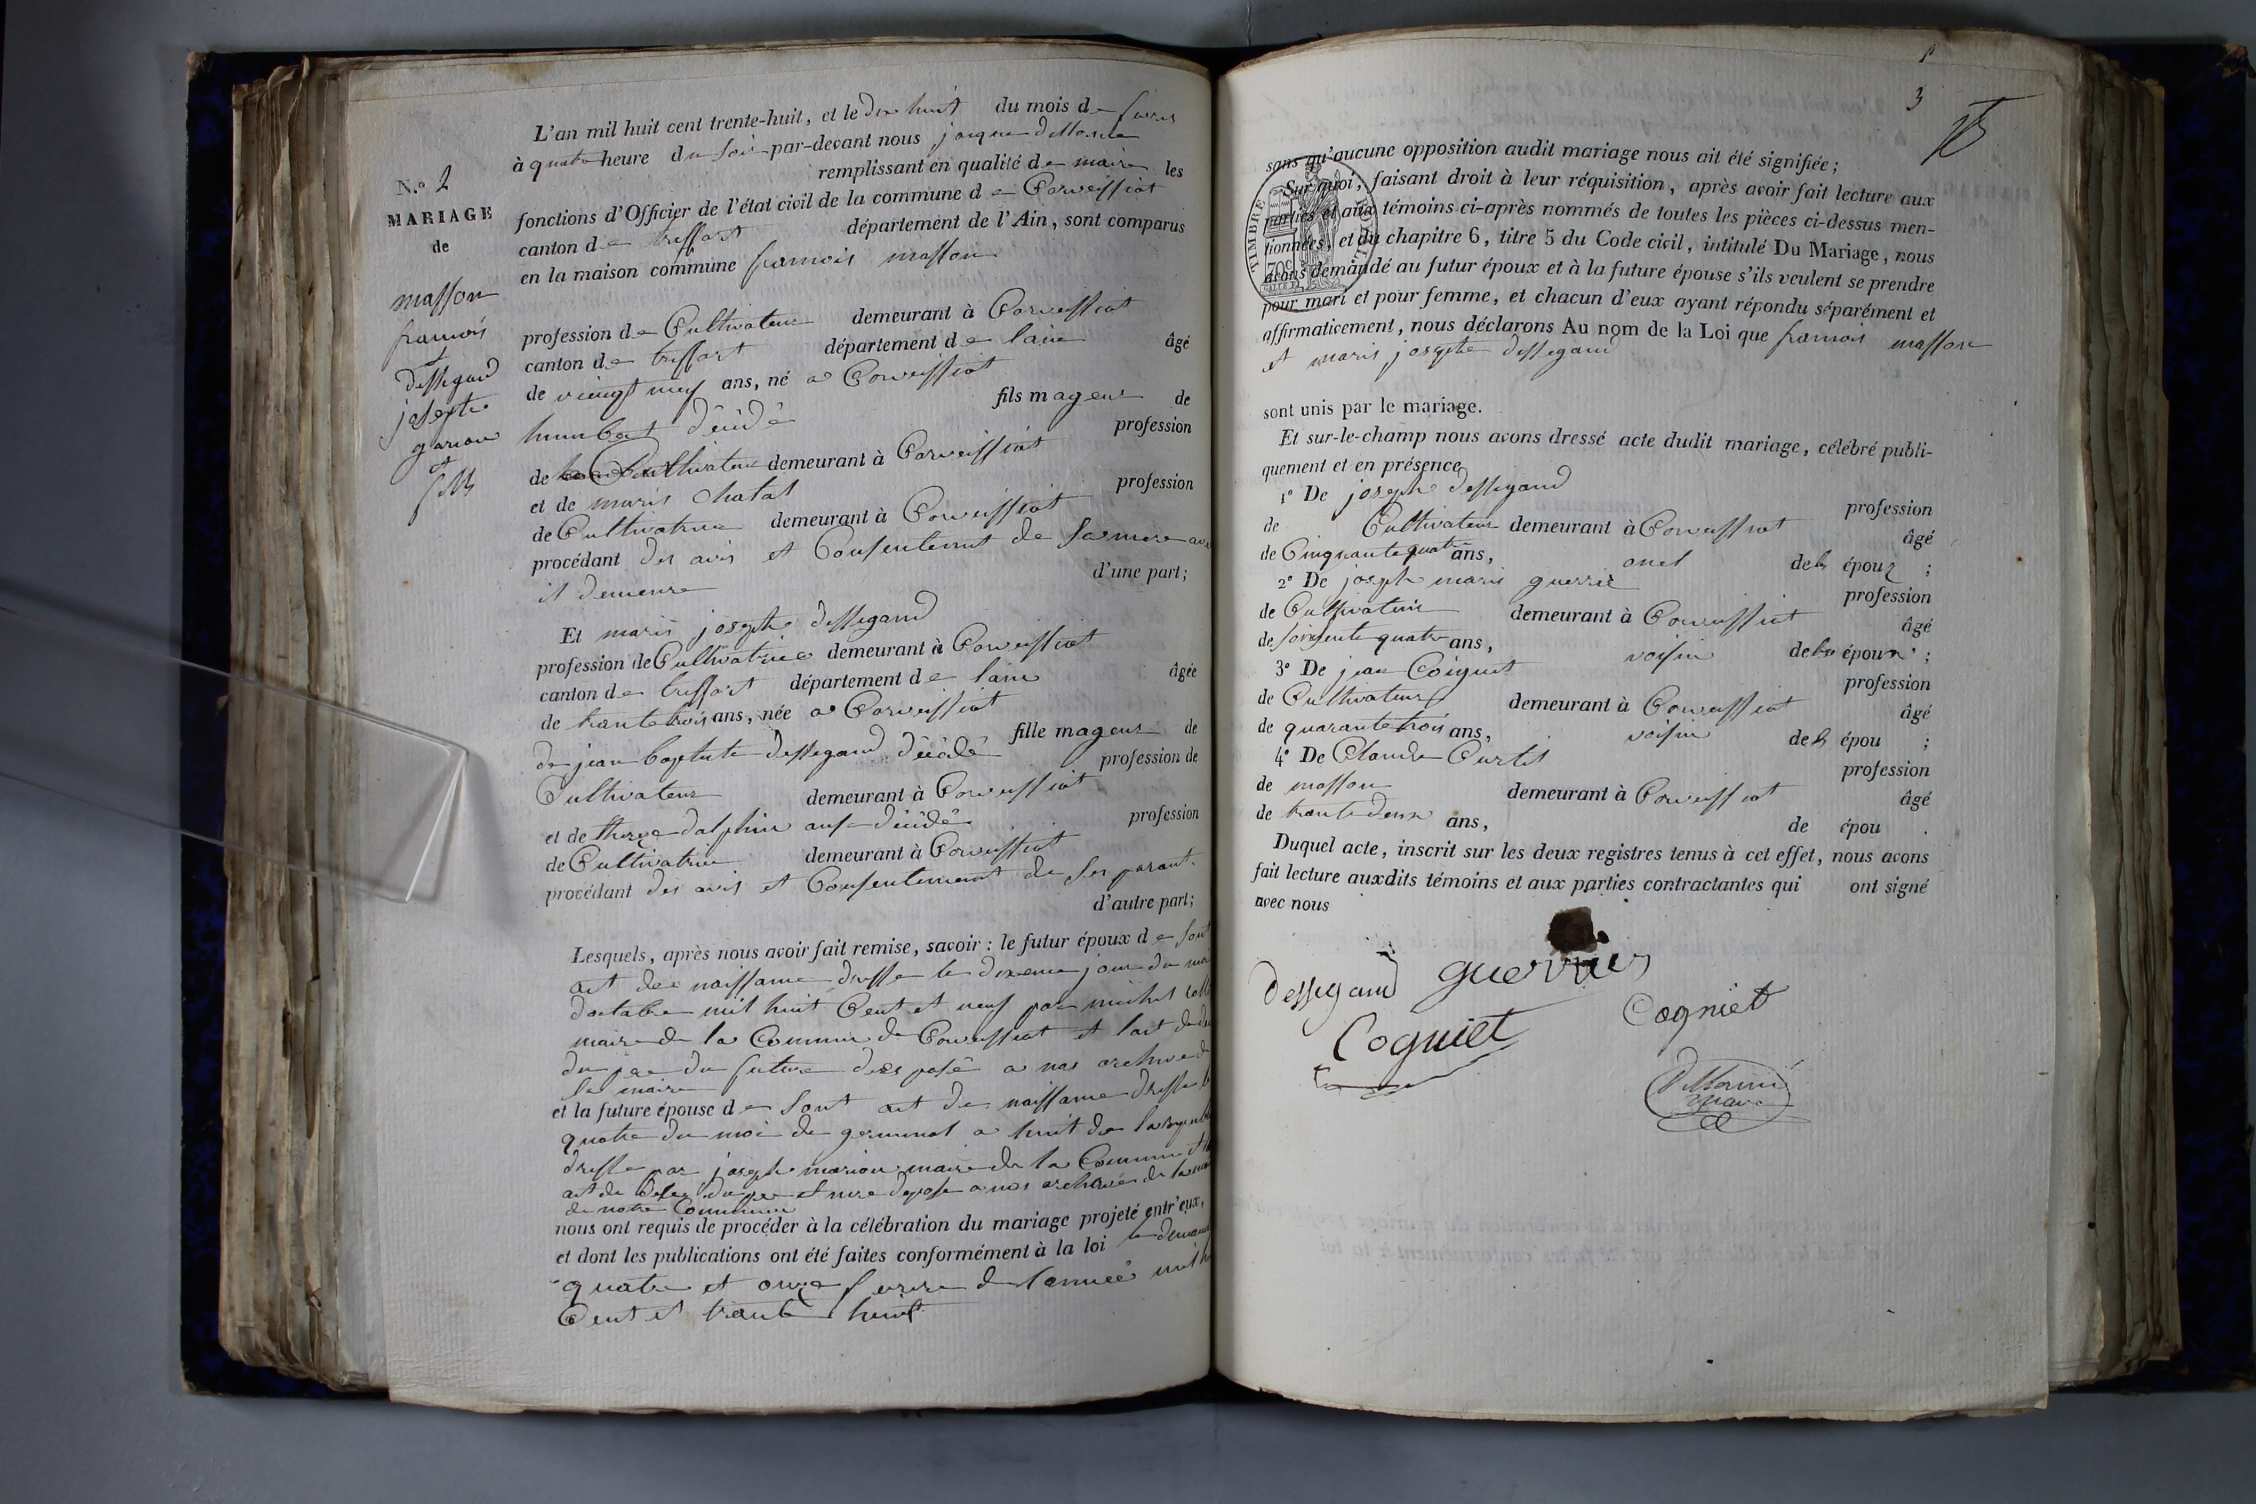 N.º 2
MARIAGE
de
masson
francois
et
dessegand
josephe
garcon
et
fille
L'an mil huit cent trente-huit, et le dix huit du mois de fevrier
à quatre heure du soir par-devant nous jacque
remplissant en qualité de maire les
fonctions d'Officier de l'état civil de la commune de Corveissiat
canton de treffort département de l'Ain, sont comparus
en la maison commune francois masson
profession de Cultivateur demeurant à Corveissiat
canton de treffort département de lain âgé
de vieingt neuf ans, né a Corveissiat
fils mageur de
humbert décédé profession
de Cultivateur demeurant à Corveissiat
et de marie chatal profession
de Cultivatrice demeurant à Corveissiat
procédant des avis et Consentement de sa mere avec
il demeure d'une part;
Et marie josephe dessegand
profession de Cultivatrice demeurant à Corveissiat
canton de treffort département de lain âgée
de trante trois ans, née a Corveissiat
fille mageur de
de jean baptiste dessegand décédé profession de
Cultivateur demeurant à Corveissiat
et de therese dalphin ausse décédé profession
de Cultivatrice demeurant à Corveissiat
procédant des avis et Consentement de ses parant
d'autre part;
Lesquels, après nous avoir fait remise, savoir: le futur époux de sont
act de naissance dresse le dixeme jour du moi
doctobre mil huit Cent et neuf par michel
maire de la Commune de Corveissiat et lact de
du pere du futur desposé a nos archive de
la mairie
et la future épouse de sont act de naissance dresse le
quatre du moi de germinal a huit de la
dresse par joseph marion maire de la Commune et
act de deces du pere et mere depose a nos archives de la
de notre Commune
nous ont requis de procéder à la célébration du mariage projeté entr'eux,
et dont les publications ont été faites conformément à la loi le
quatre et onze fevrier de lannéé mil
Cent et trante huit
3
sans qu'aucune opposition audit mariage nous ait été signifiée;
Sur quoi, faisant droit à leur réquisition, après avoir fait lecture aux
parties et aux témoins ci-après nommés de toutes les pièces ci-dessus men-
tionnées, et du chapitre 6, titre 5 du Code civil, intitulé Du Mariage, nous
avons demandé au futur époux et à la future épouse s'ils veulent se prendre
pour mari et pour femme, et chacun d'eux ayant répondu séparément et
affirmativement, nous déclarons Au nom de la Loi que francois masson
et marie josephe dessegand
sont unis par le mariage.
Et sur-le-champ nous avons dressé acte dudit mariage, célébré publi-
quement et en présence
1º De joseph dessegand profession
de Cultivateur demeurant à Corveissiat âgé
de Cinquante quatre ans, oncl de l épouz ;
2º De joseph marie guerrier profession
de Cultivateur demeurant à Corveissiat âgé
de soixente quatre ans, voisin de époux ;
3º De jean Coignet profession
de Cultivateur demeurant à Corveissiat âgé
de quarante trois ans, voisin de l épou ;
4º De Claude Curtet profession
de masson demeurant à Corveissiat âgé
de trante deux ans, de épou .
Duquel acte, inscrit sur les deux registres tenus à cet effet, nous avons
fait lecture auxdits témoins et aux parties contractantes qui ont signé
avec nous
TIMBRE ROYAL
70c
Dessegand guerrier
Cogniet Cogniet
maire